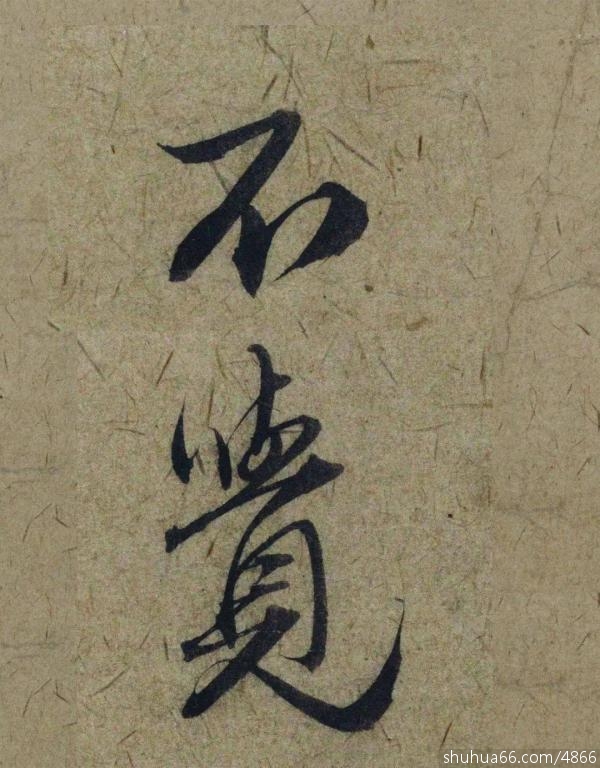 不覺
shuhua66.com/4866